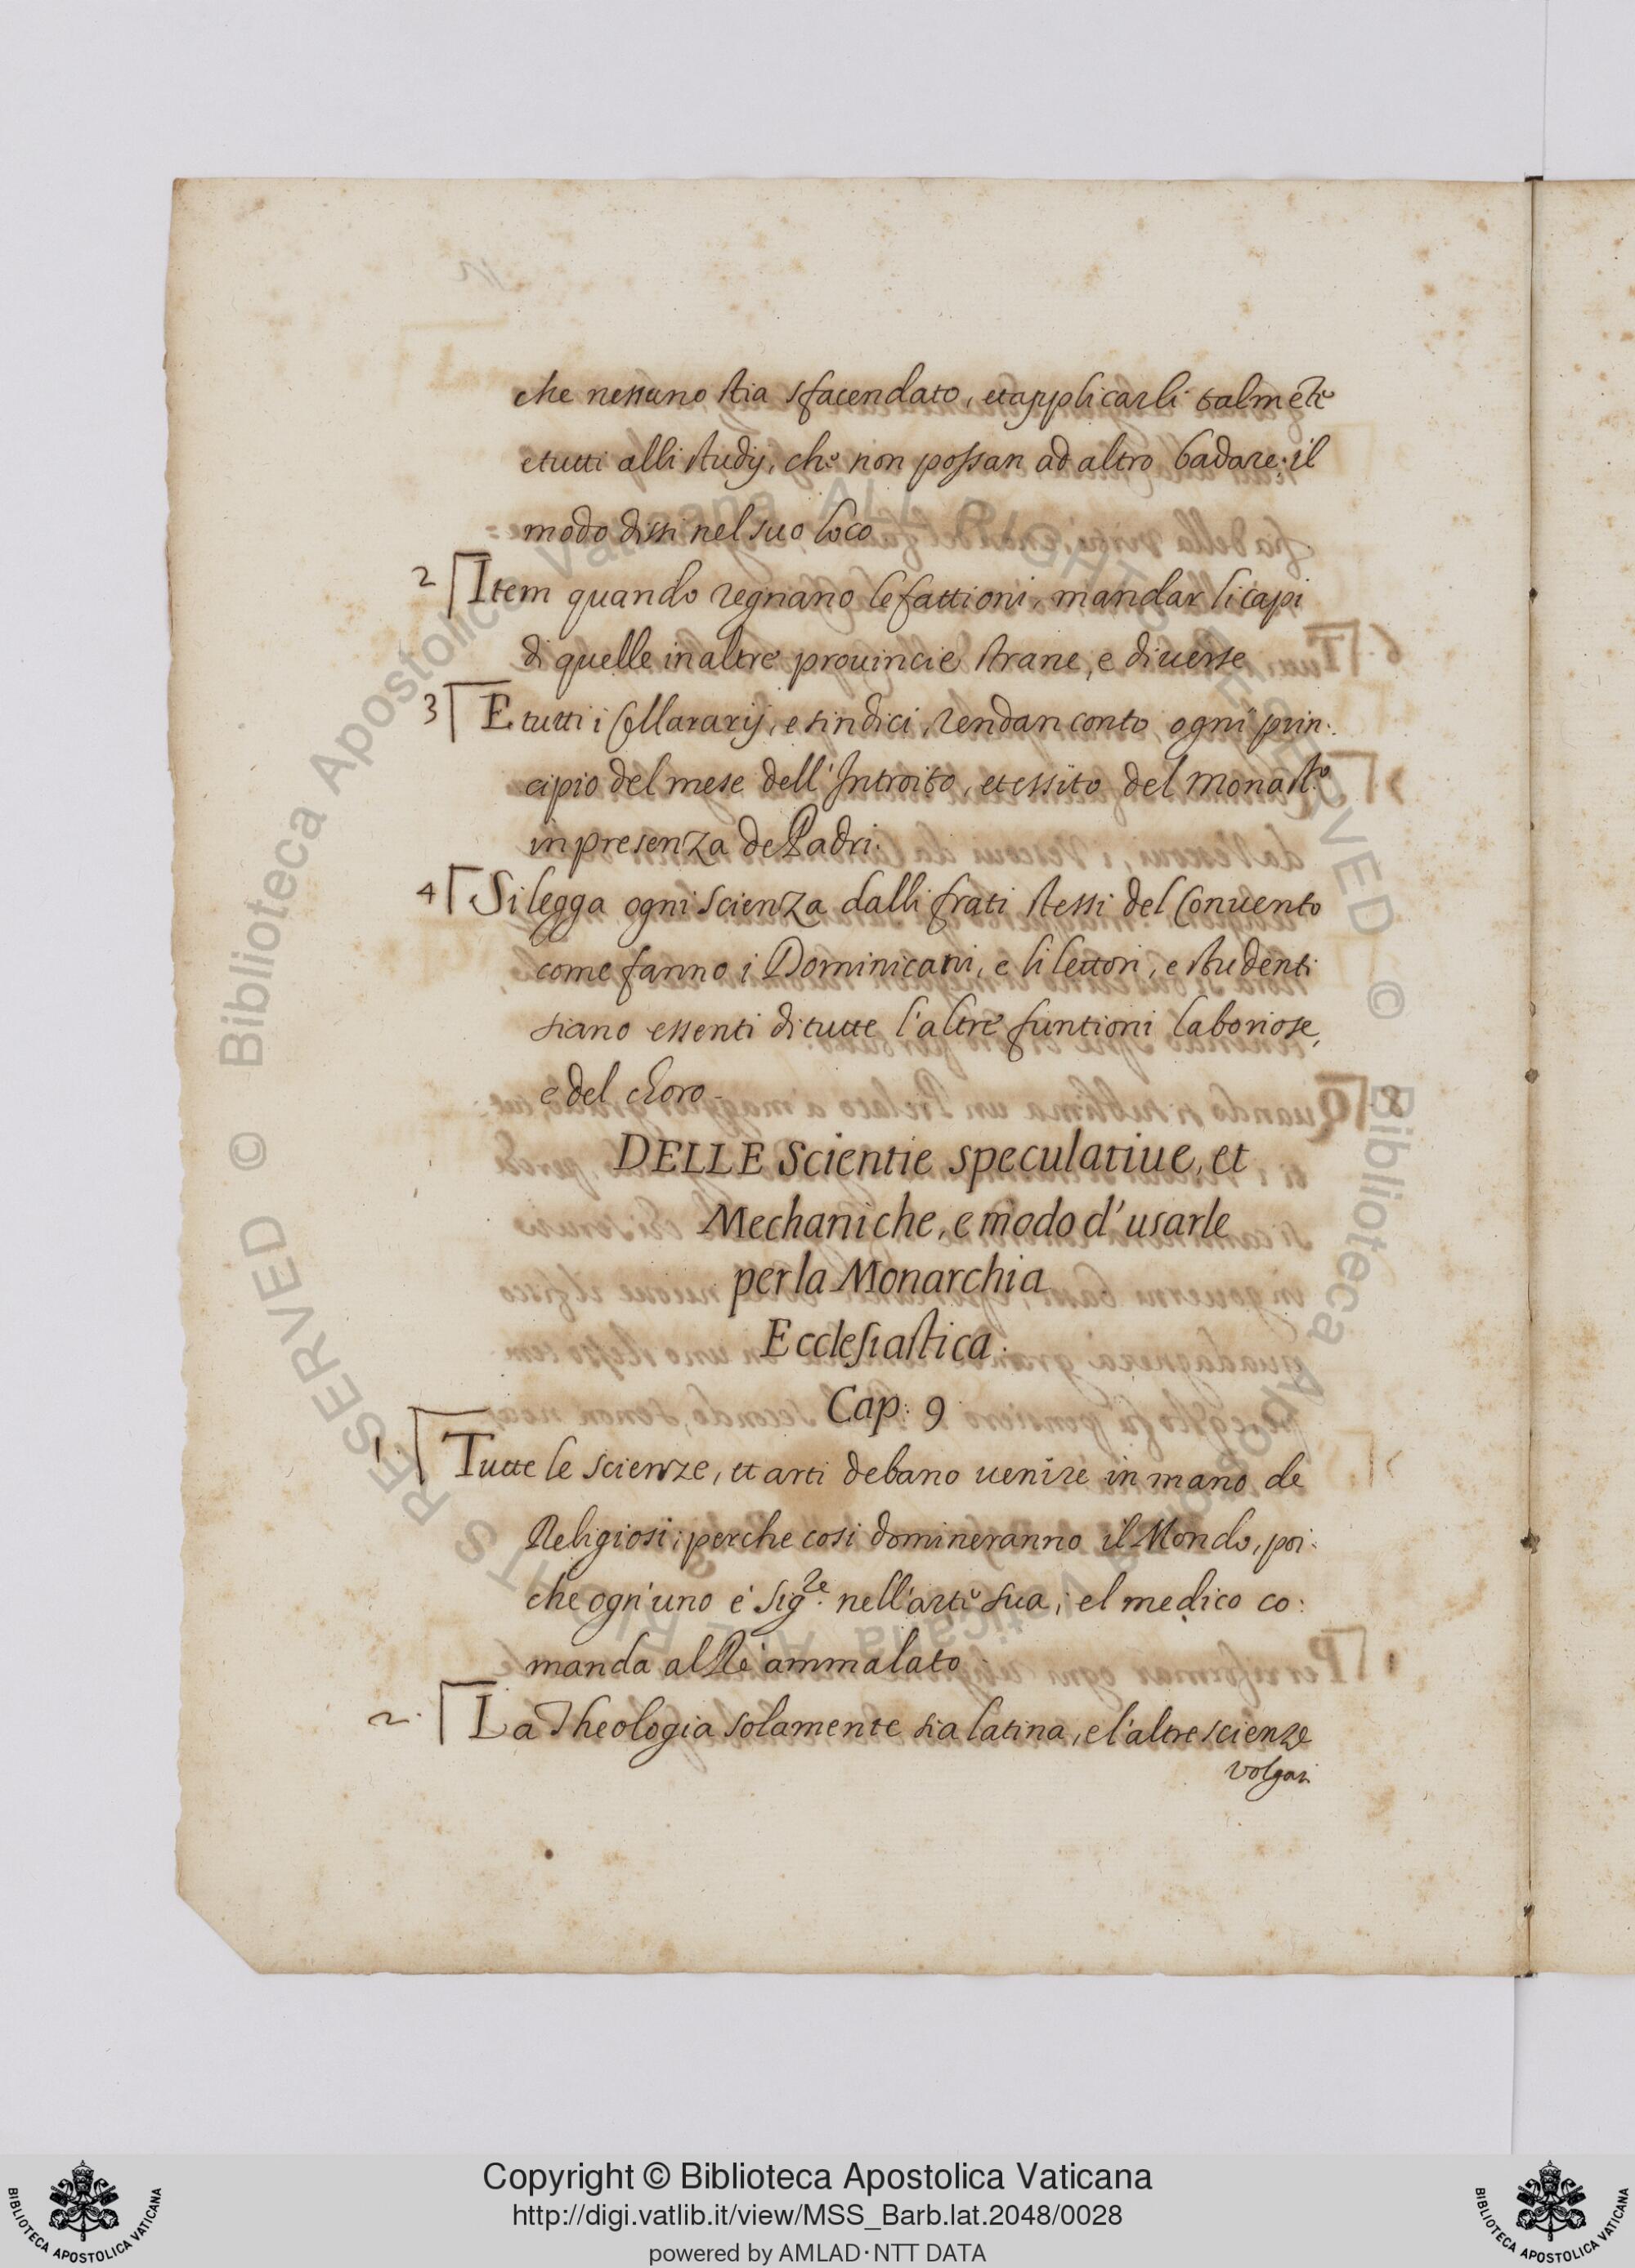 che nessuno stia sfacendato, et applicarli talmẽte
e tutti alli studij, che non possan ad altro badare; il
modo dissi nel suo loco
2 Item quando regnano le fattioni, mandar li capi
di quelle in altre prouincie strane, e diuerse
3 E tutti i Cellararij, e sindici, rendan conto ogni prin:
cipio del mese dell'Introito, et essito del Monast.o
in presenza de Padri.
4 Si legga ogni scienza dalli frati stessi del Conuento
come fanno i Dominicani, e li lettori, e studenti
siano essenti di tutte l'altre funtioni laboriose,
e del choro.
DELLE Scientie speculatiue, et
Mechaniche, e modo d'usarle
per la Monarchia
Ecclesiastica.
Cap: 9
1. Tutte le scienze, et arti debano uenire in mano de
Religiosi; perche cosi domineranno il Mondo, poi:
che ogn'uno é sig.re nell'arte sua; el medico co:
manda al Ré ammalato
2. La Theologia solamente sia latina, e l'altre scienze
volgari
Copyright © Biblioteca Apostolica Vaticana
http://digi.vatlib.it/view/MSS_Barb.lat.2048/0028
powered by AMLAD·NTT DATA
BIBLIOTECA APOSTOLICA VATICANA
BIBLIOTECA APOSTOLICA VATICANA